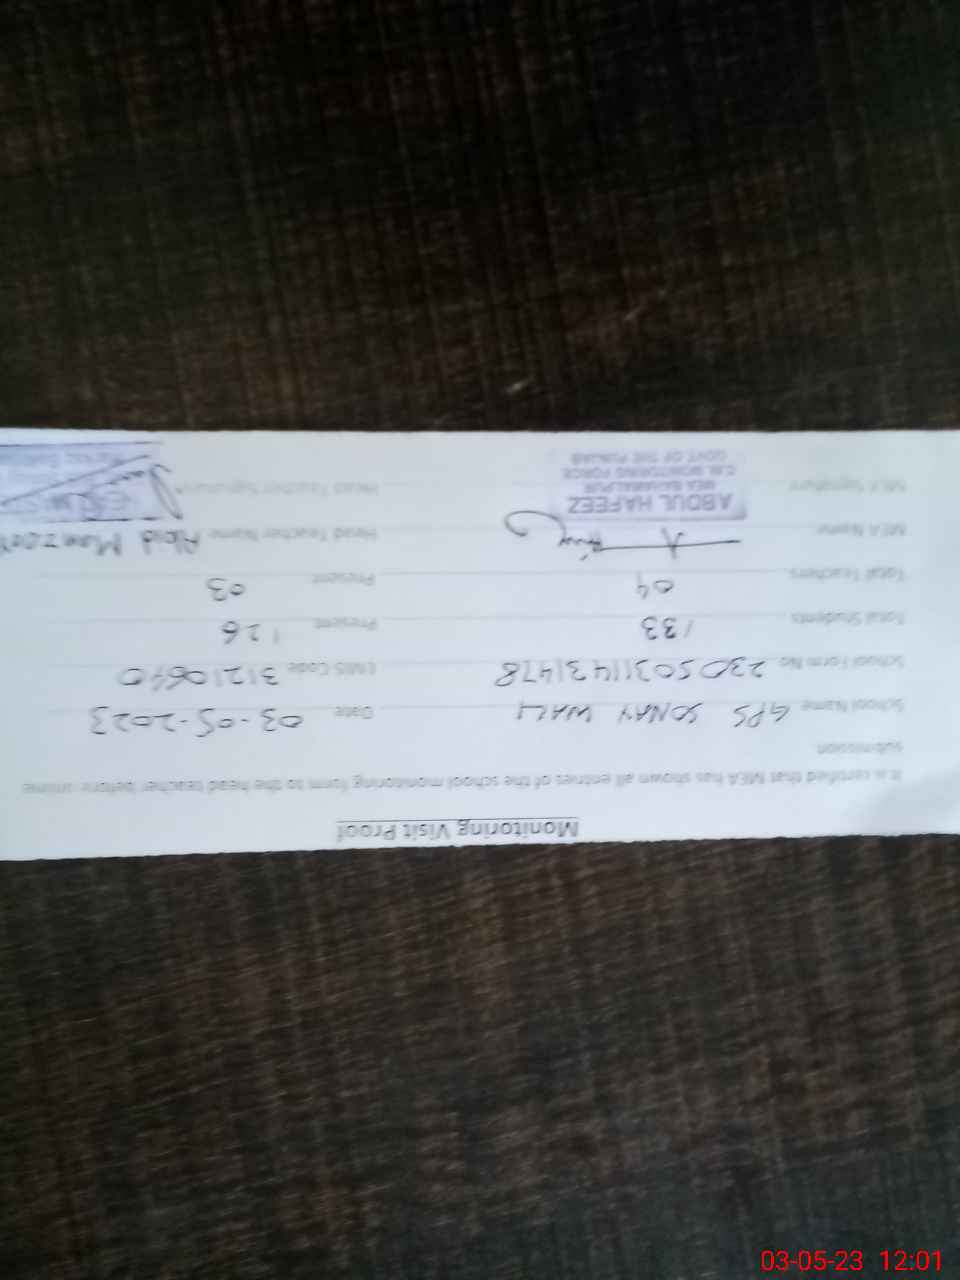 Monitoring Visit Proof
It is certified that MEA has shown all entries of the school monitoring form to the head teacher before online
submission
School Name GPS SONAY WALI Date 03-05-2023
School Form No 23050311431478 EMIS Code 31210640
Total Students 133 Present 126
Total Teachers 04 Present 03
MEA Name Head Teacher Name Abid Manzoor
MEA Signature Head Teacher Signature
ABDUL HAFEEZ
MEA BAHAWALPUR
C.M. MONITORING FORCE
GOVT OF THE PUNJAB
03-05-23 12:01